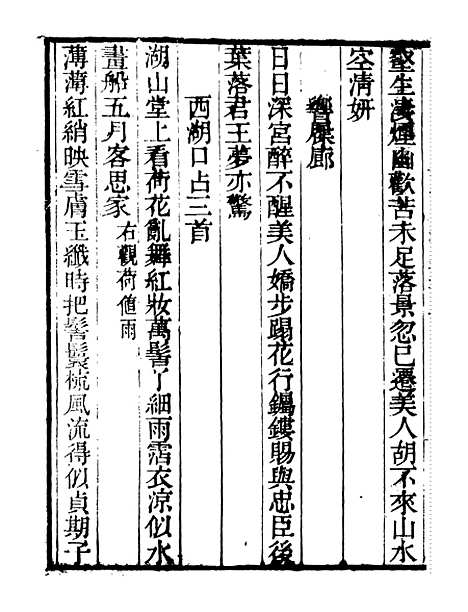 壑生淒煙幽歡苦未足落景忽已遷美人胡不來山水
空清妍
響屧廊
日日深宮醉不醒美人嬌步蹋花行鐲鏤賜與忠臣後
葉落君王夢亦驚
西湖口占三首
湖山堂上看荷花亂舞紅妝萬髻丫細雨霑衣涼似水
畫船五月客思家右觀荷値雨
薄薄紅綃映雪膚玉纖時把髻鬟梳風流得似貞期子